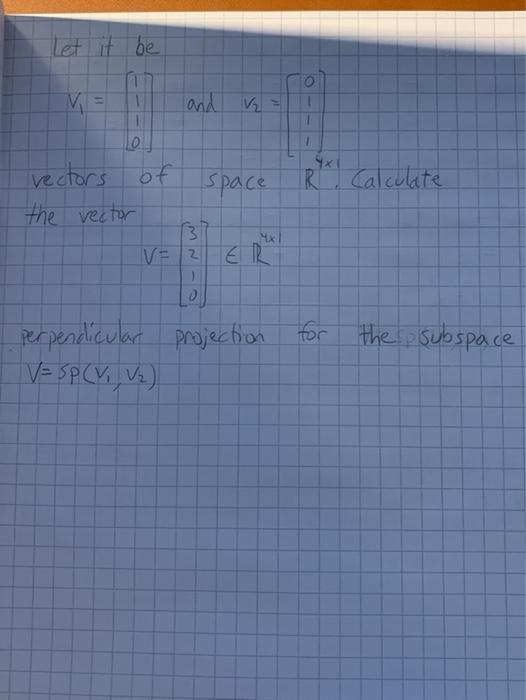 Let it be
V₁ = [1 1 1 0] and v₂ = [0 1 1 1]
vectors of space ℝ⁴ˣ¹. Calculate
the vector
V = [3 2 1 0] ∈ ℝ⁴ˣ¹
perpendicular projection for the subspace
V = sp(V₁, V₂)